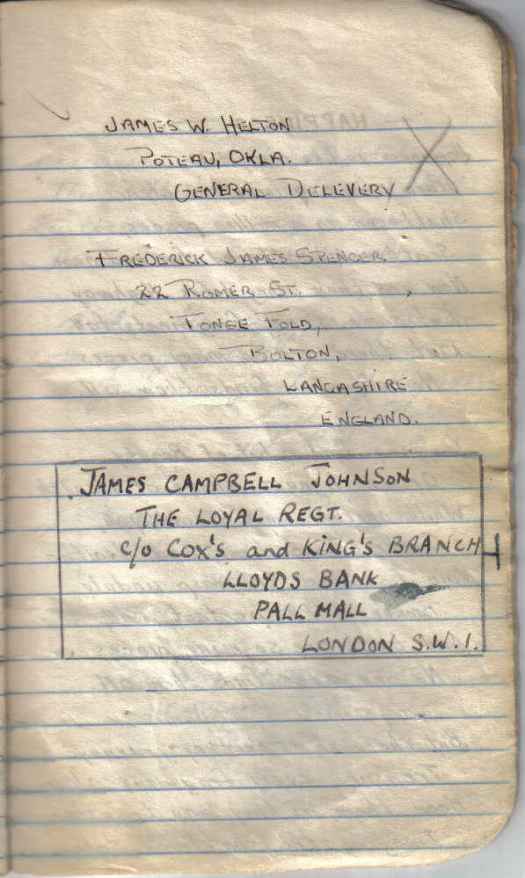 JAMES W. HELTON
POTEAU, OKLA.
GENERAL DELEVERY
FREDERICK JAMES SPENCER.
22 ROMER ST.
TONGE FOLD,
BOLTON,
LANCASHIRE
ENGLAND.
JAMES CAMPBELL JOHNSON
THE LOYAL REGT.
c/o COX'S and KING'S BRANCH
LLOYDS BANK
PALL MALL
LONDON S.W.1.